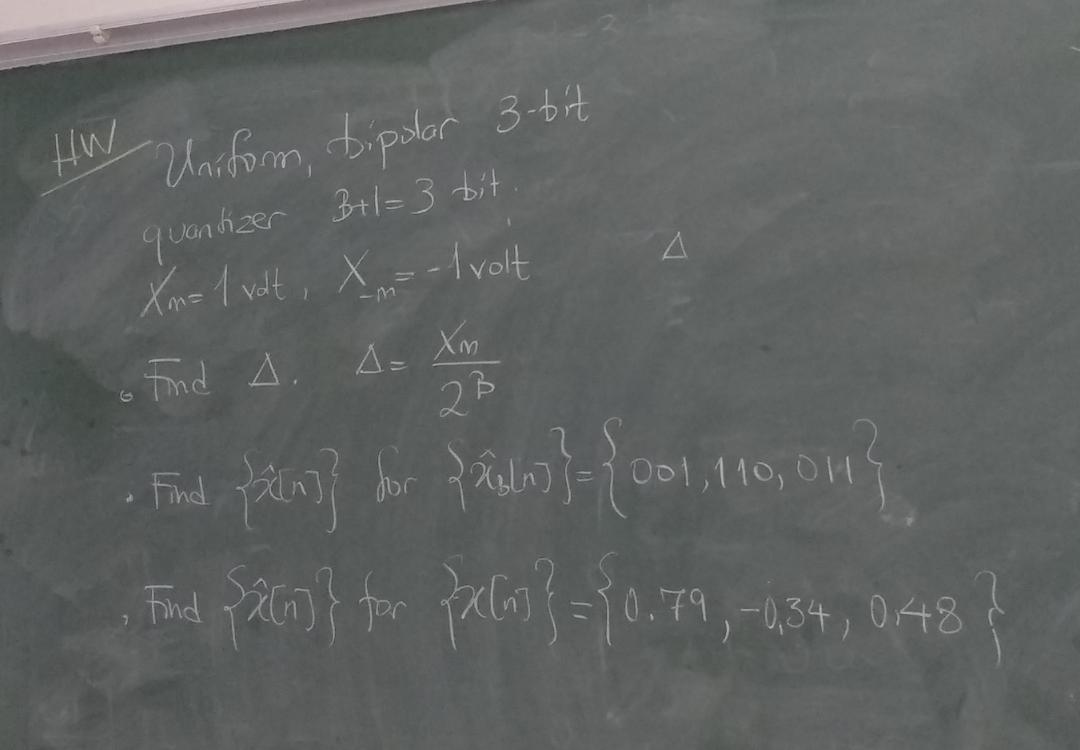 HW Uniform, bipolar 3-bit
quantizer B+1=3 bit.
Xm=1 volt, X-m=-1 volt
Δ
. Find Δ. Δ= Xm/2^B
. Find {x̂[n]} for {x̂B[n]}={001,110,011}
. Find {x̂[n]} for {x[n]}={0.79,-0.34, 0.48}